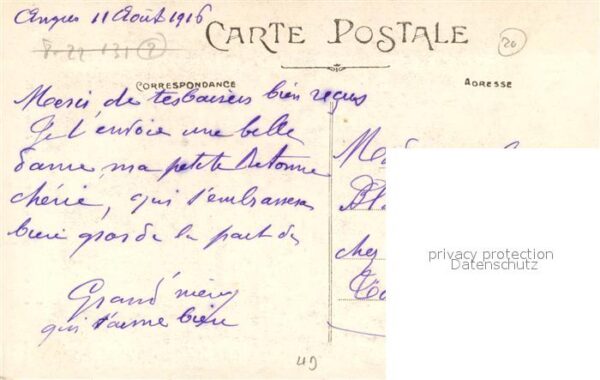 Angers 11 Août 1916
8-22 131 (2)
CARTE POSTALE
20
CORRESPONDANCE
ADRESSE
Merci de tes baisers bien reçus
Je t'envoie une belle
dame, ma petite
chérie, qui t'embrassera
bien gros de la part de
Grand'mère
qui t'aime bien
chez
privacy protection
Datenschutz
49